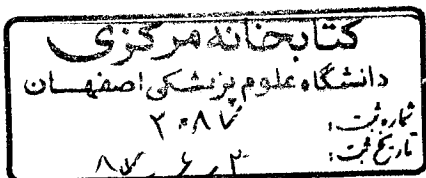 کتابخانه مرکزی
دانشگاه علوم پزشکی اصفهان
شماره ثبت:
تاریخ ثبت: